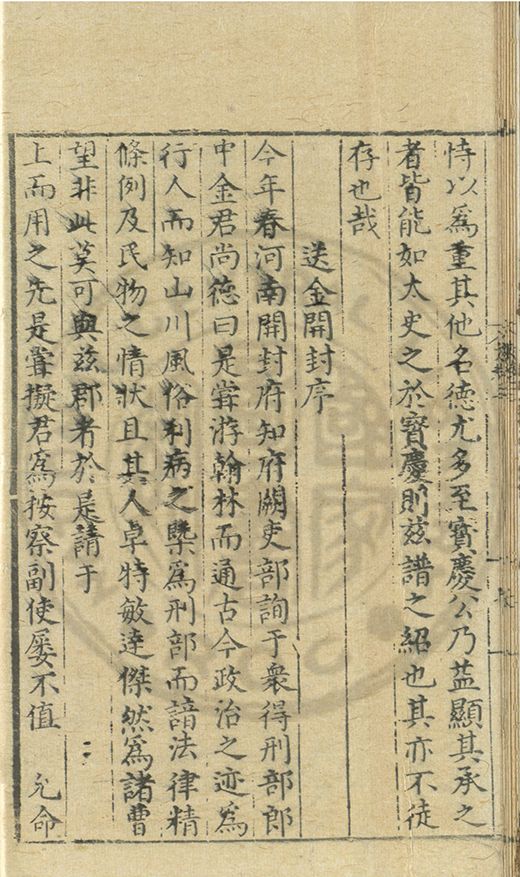 恃以爲重其他名德尤多至寳慶公乃益顯其承之
者皆能如太史之於寳慶則兹譜之紹也其亦不徒
存也哉
送金開封序
今年春河南開封府知府闕吏部詢于衆得刑部郎
中金君尚德曰是甞游翰林而通古今政治之迹爲
行人而知山川風俗利病之槩爲刑部而諳法律精
條例及民物之情狀且其人卓特敏達傑然爲諸曹
望非此莫可與兹郡者於是請于
上而用之先是甞擬君爲按察副使屡不值 允命